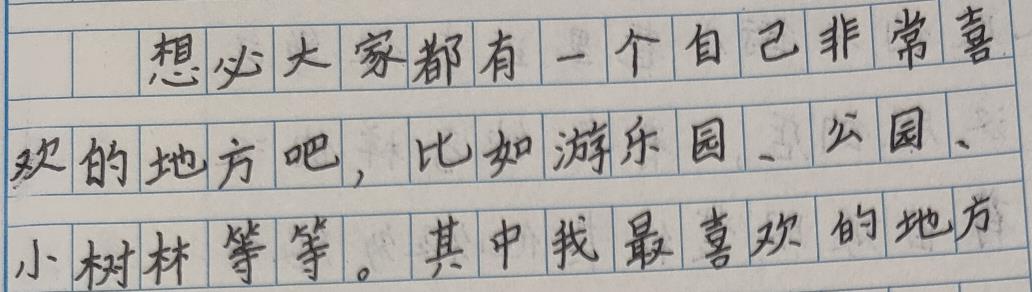 想必大家都有一个自己非常喜
欢的地方吧，比如游乐园、公园、
小树林等等。其中我最喜欢的地方